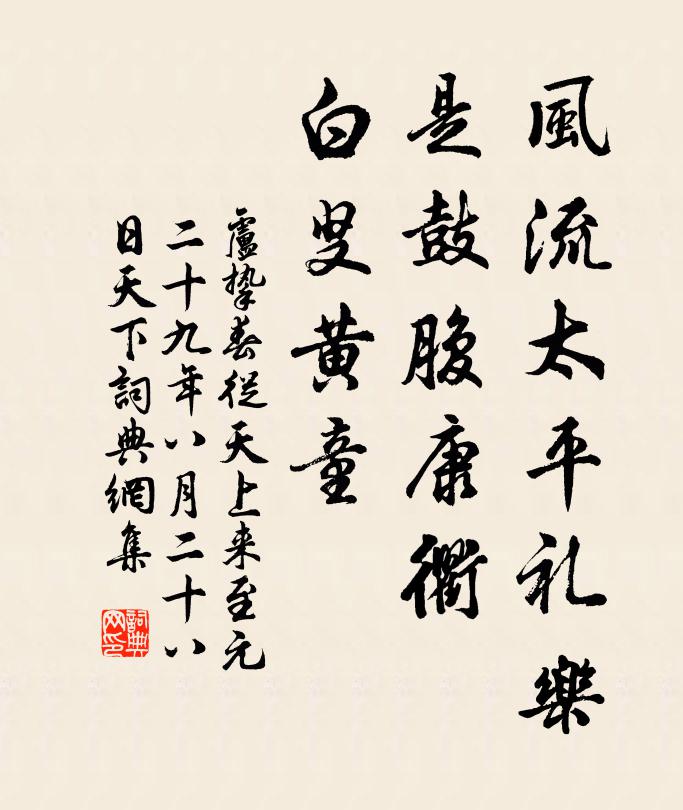 風流太平礼樂
是鼓腹康衢
白叟黃童
盧摯春從天上来至元
二十九年八月二十八
日天下詞典網集
詞典网印